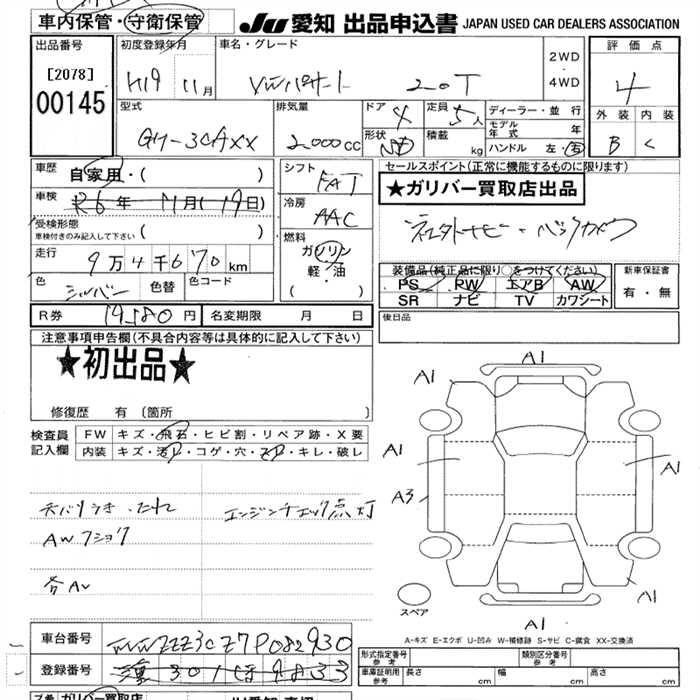 車内保管・守衛保管 JU 愛知 出品申込書 JAPAN USED CAR DEALERS ASSOCIATION
出品番号 初度登録年月 車名・グレード 2WD 評価点
[2078] H19 11月 VWパサート 2.0T ・ 4WD 4
00145 型式 排気量 ドア 4 定員 5人 ディーラー・並行 外装 内装
モデル年式 年
GH-3CAXX 2,000CC 形状 SD 積載 kg ハンドル 左・右 B C
車歴 自家用・( ) シフト セールスポイント(正常に機能するものに限ります)
FAT ★ガリバー買取店出品
車検 R6年 11月(19日) 冷房
AAC 社外ナビ・バックカメラ
受検形態
車検付きのみ記入して下さい ( ) 燃料
走行 9万4千670km ガソリン
軽・油 装備品(純正品に限り○をつけてください) 新車保証書
色 シルバー 色替 色コード ( ) PS PW エアB AW 有・無
SR ナビ TV カワシート
R券 14580円 名変期限 月 日 後日品
注意事項申告欄(不具合内容等は具体的に記入して下さい)
★初出品★
修復歴 有 (箇所 )
検査員 FW キズ・飛石・ヒビ割・リペア跡・X要
記入欄 内装 キズ・汚レ・コゲ・穴・スレ・キレ・破レ
天バリうき・たれ エンジンチェック点灯
AWフショク
各AU
A1
A1 A1
A1 A1
A3
A1
A1
スペア
A-キズ E-エクボ U-凹み W-補修跡 S-サビ C-腐食 XX-交換済
車台番号 WVWZZZ3CZ7P082930
登録番号 301
形式指定番号 参考 類別区分番号 参考
車庫証明用 参考 長さ cm 幅 cm 高さ cm
ガリバー買取店 JU愛知